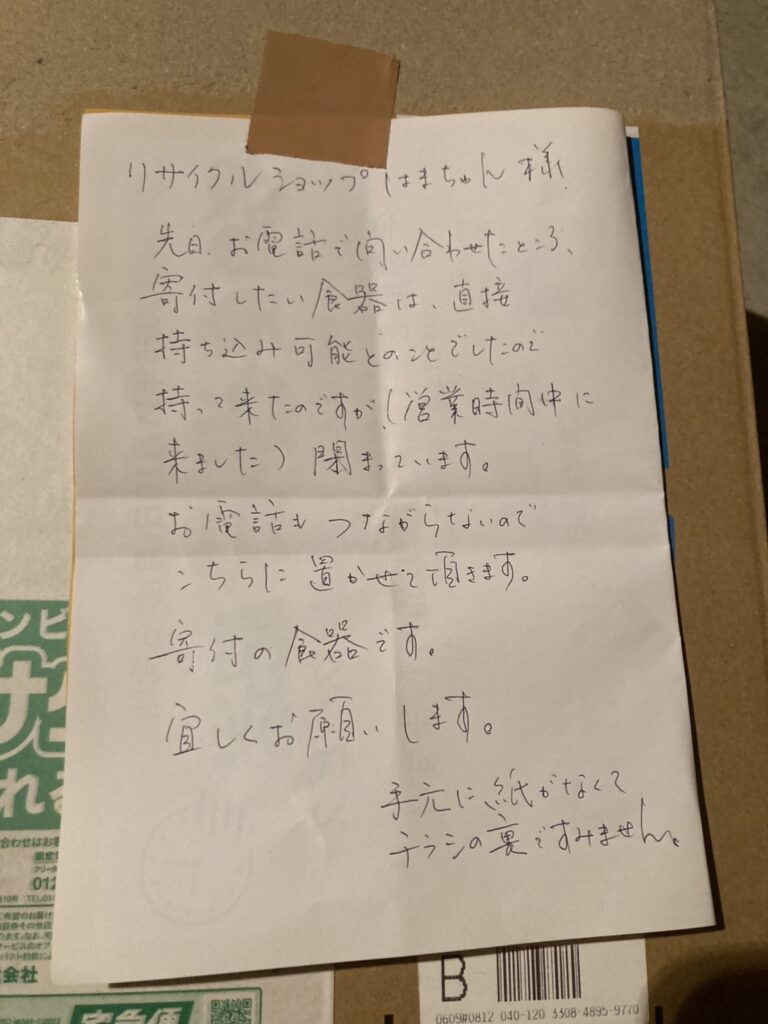 リサイクルショップはまちゃん 様
先日、お電話で問い合わせたところ、
寄付したい食器は、直接
持ち込み可能とのことでしたので
持って来たのですが(営業時間中に
来ました)閉まっています。
お電話もつながらないので
こちらに置かせて頂きます。
寄付の食器です。
宜しくお願いします。
手元に紙がなくて
チラシの裏ですみません。
ンビ
れる
合わせはお客
012
式会社
宅急便
B
0609#0812 040-120 3308-4895-9770